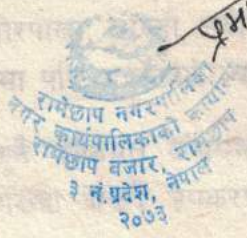 रामेछाप नगरपालिका
नगर कार्यपालिकाको कार्यालय
रामेछाप बजार, रामेछाप
३ नं.प्रदेश, नेपाल
२०७३